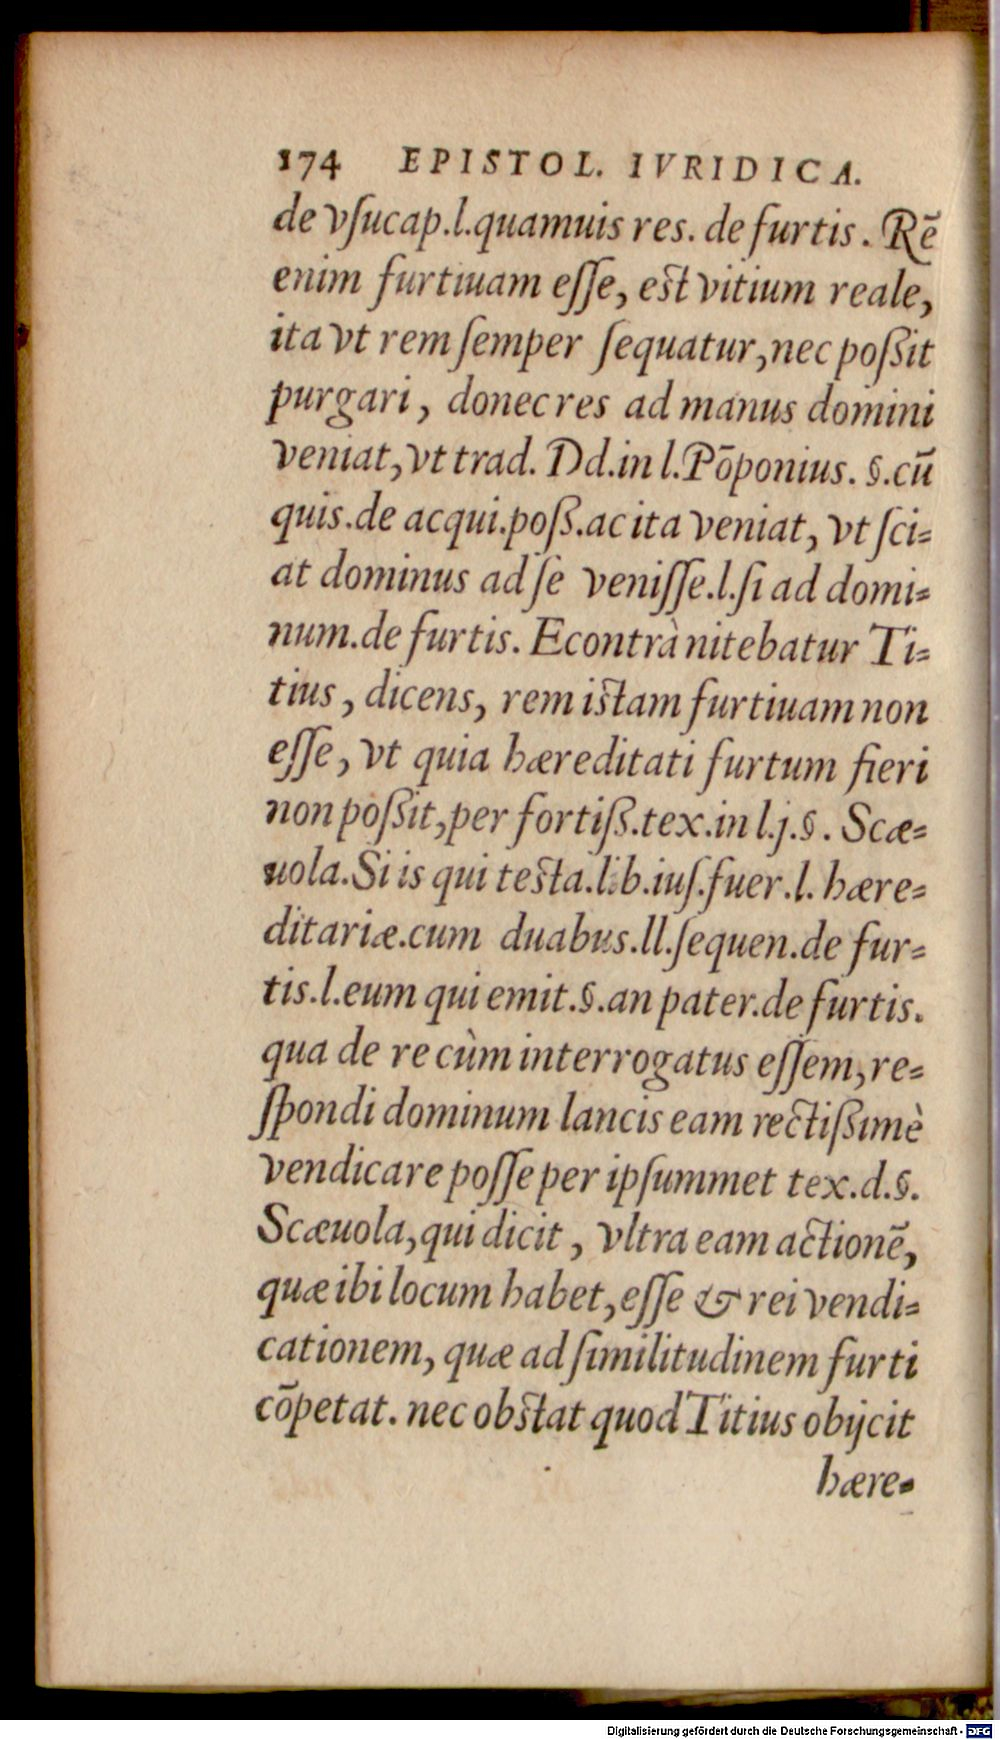 174 EPISTOL. IVRIDICA.
de vſucap.l.quamuis res. de furtis. Rē
enim furtiuam eſſe, est vitium reale,
ita vt rem ſemper ſequatur, nec poßit
purgari, donec res ad manus domini
veniat, vt trad. Dd.in l.Pōponius. §.cū
quis.de acqui.poß.ac ita veniat, vt ſci=
at dominus ad ſe veniſſe.l.ſi ad domi=
num.de furtis. Econtrà nitebatur Ti=
tius, dicens, rem istam furtiuam non
eſſe, vt quia hæreditati furtum fieri
non poßit, per fortiß.tex.in l.j.§. Scæ=
uola.Si is qui testa.lib.iuſ.fuer.l. hære=
ditariæ.cum duabus.ll.ſequen.de fur=
tis.l.eum qui emit.§.an pater.de furtis.
qua de re cùm interrogatus eſſem, re=
ſpondi dominum lancis eam rectißimè
vendicare poſſe per ipſummet tex.d.§.
Scæuola, qui dicit, vltra eam actionē,
quæ ibi locum habet, eſſe & rei vendi=
cationem, quæ ad ſimilitudinem furti
cōpetat. nec obstat quod Titius obijcit
hære=
Digitalisierung gefördert durch die Deutsche Forschungsgemeinschaft - DFG